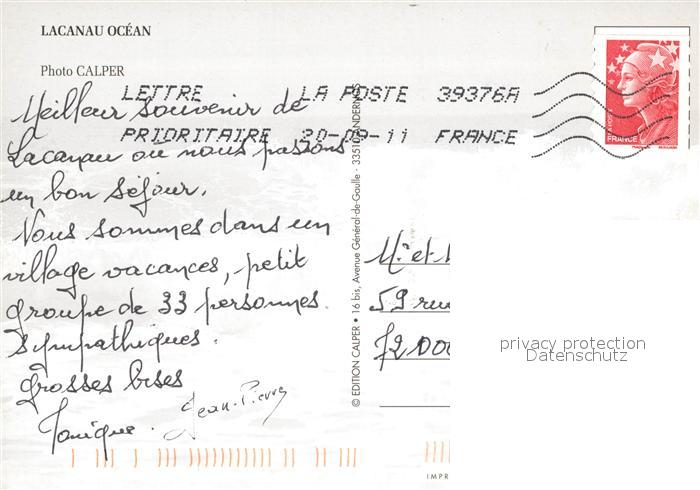 LACANAU OCÉAN
Photo CALPER
LETTRE LA POSTE 39376A
PRIORITAIRE 30-09-11 FRANCE
Meilleur souvenir de
Lacanau où nous passons
un bon séjour.
Nous sommes dans un
village vacances, petit
groupe de 33 personnes.
Sympathiques.
Grosses bises
Jean-Pierre
© EDITION CALPER • 16 bis, Avenue Général-de-Gaulle - 33510 ANDERNOS
FRANCE
Mr et
59 rue
72000
privacy protection
Datenschutz
IMPR